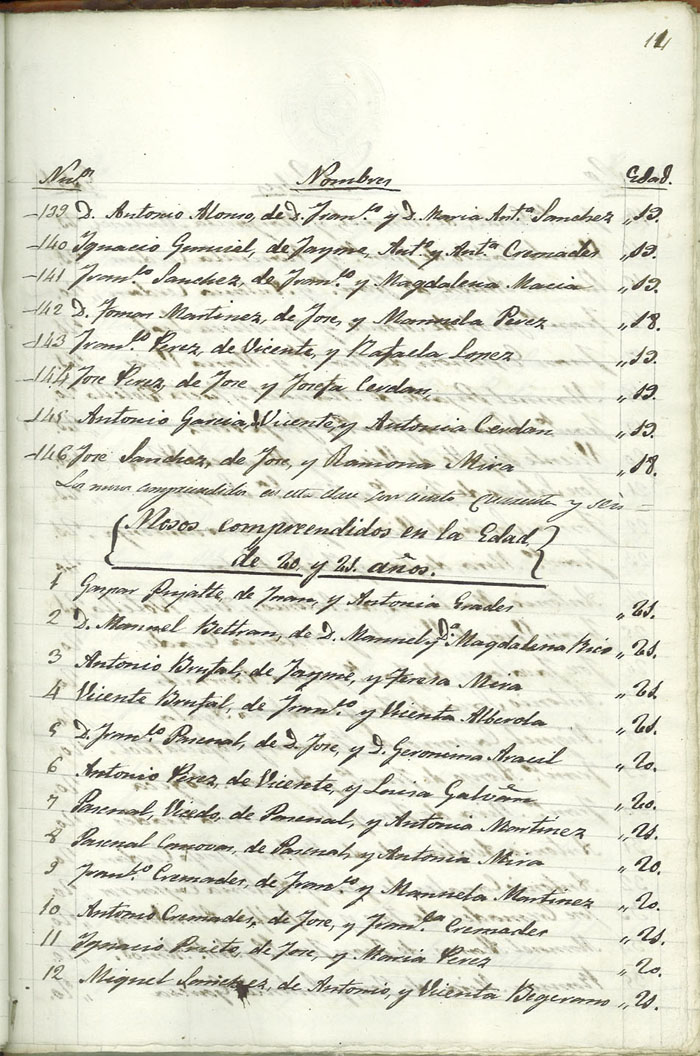 14
Num.n Nombres Edad.
139 D. Antonio Alonso, de D. Fran.co y D. Maria Ant.a Sanchez „ 19.
140 Ignacio Gumiel, de Jayme, Ant.o y Ant.a Cremades „ 19.
141 Fran.co Sanchez, de Fran.co y Magdalena Macia „ 19.
142 D. Tomas Martinez, de Jose, y Manuela Perez „ 18.
143 Fran.co Perez, de Vicente, y Rafaela Lopez „ 19.
144 Jose Perez, de Jose y Josefa Cerdan, „ 19.
145 Antonio Garcia, Vicente y Antonia Cerdan „ 19.
146 Jose Sanchez, de Jose, y Ramona Mira „ 18.
Los mosos comprendidos en esta clase son ciento cuarenta y seis =
Mosos comprendidos en la Edad,
de 20. y 21. años.
1 Gaspar Pujalte, de Juan, y Antonia Grades „ 21.
2 D. Manuel Beltran, de D. Manuel y D.a Magdalena Rico „ 21.
3 Antonio Brufal, de Jayme, y Teresa Mira „ 21.
4 Vicente Brufal, de Fran.co y Vicenta Alberola „ 21.
5 D. Fran.co Pascual, de D. Jose, y D. Geronima Aracil „ 20.
6 Antonio Perez, de Vicente, y Luisa Galvañ „ 20.
7 Pascual, Vicedo, de Pascual, y Antonia Martinez „ 21.
8 Pascual Canovas, de Pascual, y Antonia Mira „ 20.
9 Fran.co Cremades, de Fran.co y Manuela Martinez „ 20.
10 Antonio Cremades, de Jose, y Fran.ca Cremades „ 21.
11 Ignacio Prieto, de Jose, y Maria Perez „ 20.
12 Miguel Sanchez, de Antonio, y Vicenta Begerano „ 21.